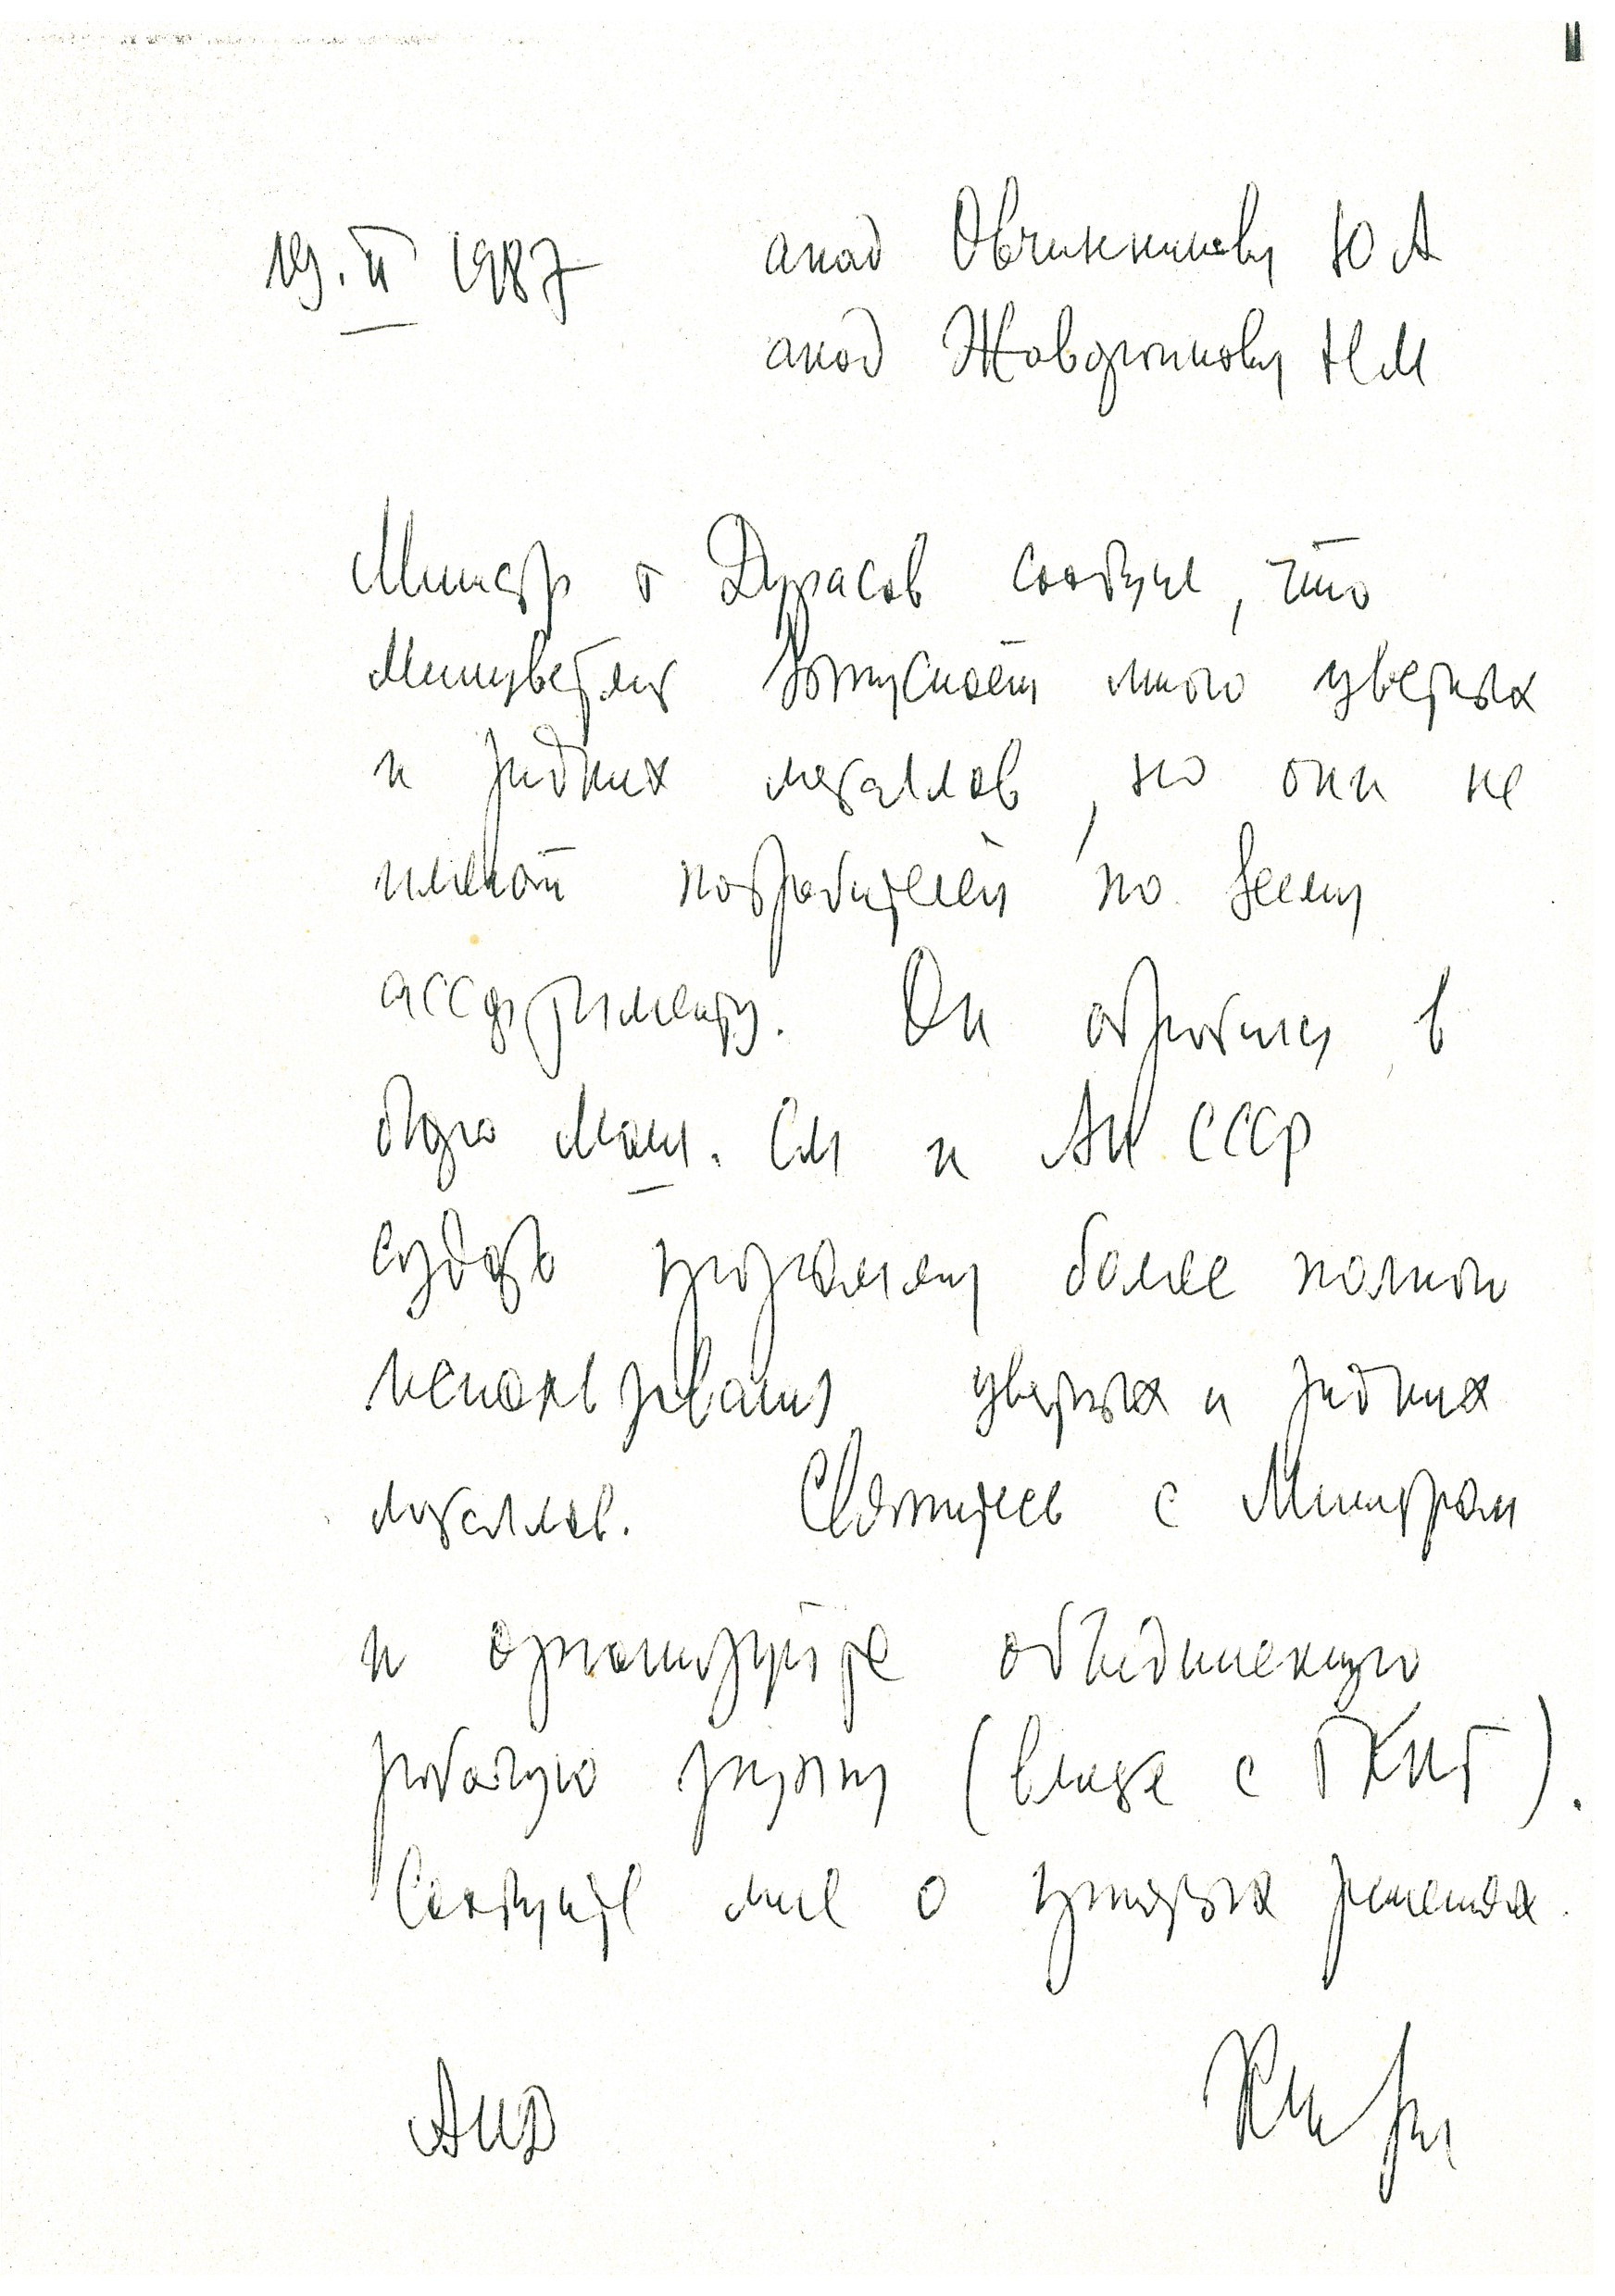 19.II 1987 акад Овчинникову Ю А
акад Жаворонкову Н М
Министр т Дурасов сообщил, что
Минцветмет выпускает много цветных
и редких металлов, но они не
имеют потребителей по всему
ассортименту. Он обратился в
бюро Маш. СМ и АН СССР
создать программу более полного
использования цветных и редких
металлов. Свяжитесь с Министром
и организуйте объединенную
рабочую группу (вместе с ГКНТ).
Сообщите мне о принятых решениях.